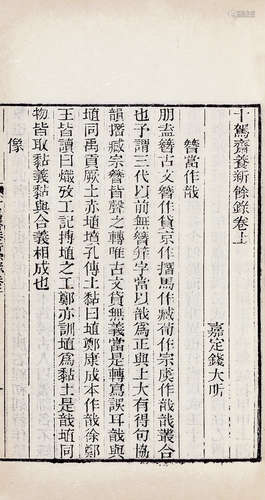 十駕齋養新餘錄卷上
嘉定錢大昕
簪當作哉
朋盍簪古文簪作貸京作撍馬作臧荀作宗虞作哉哉叢合
也予謂三代以前無簪笄字當以哉爲正與上大有得句協
韻撍臧宗簪皆聲之轉唯古文貸無義當是轉寫誤耳哉與
埴同禹貢厥土赤埴墳孔傳土黏曰埴鄭康成本作哉徐鄭
王皆讀曰熾攷工記搏埴之工鄭亦訓埴爲黏土是哉埴同
物皆取黏義黏與合義相成也
像